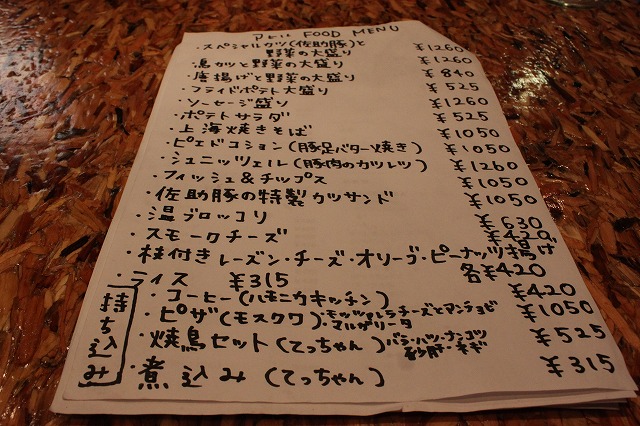 アヒル FOOD MENU
・スペシャルカツ(佐助豚)と
野菜の大盛り ¥1260
・鳥カツと野菜の大盛り ¥1260
・唐揚げと野菜の大盛り ¥840
・フライドポテト大盛り ¥525
・ソーセージ盛り ¥1260
・ポテトサラダ ¥525
・上海焼きそば ¥1050
・ピエドコション(豚足バター焼き) ¥1050
・シュニッツェル(豚肉のカツレツ) ¥1260
・フィッシュ&チップス ¥1050
・佐助豚の特製カツサンド ¥1050
・温ブロッコリ ¥630
・スモークチーズ ¥420
・枝付きレーズン・チーズ・オリーブ・ピーナッツ揚げ 各¥420
・ライス ¥315
持ち込み
・コーヒー(ハモニカキッチン) ¥420
・ピザ(モスクワ)・モッツァレラチーズとアンチョビ・マルガリータ ¥1050
・焼鳥セット(てっちゃん)バラ・ハツ・ナンコツ 砂肝・ネギ ¥525
・煮込み(てっちゃん) ¥315